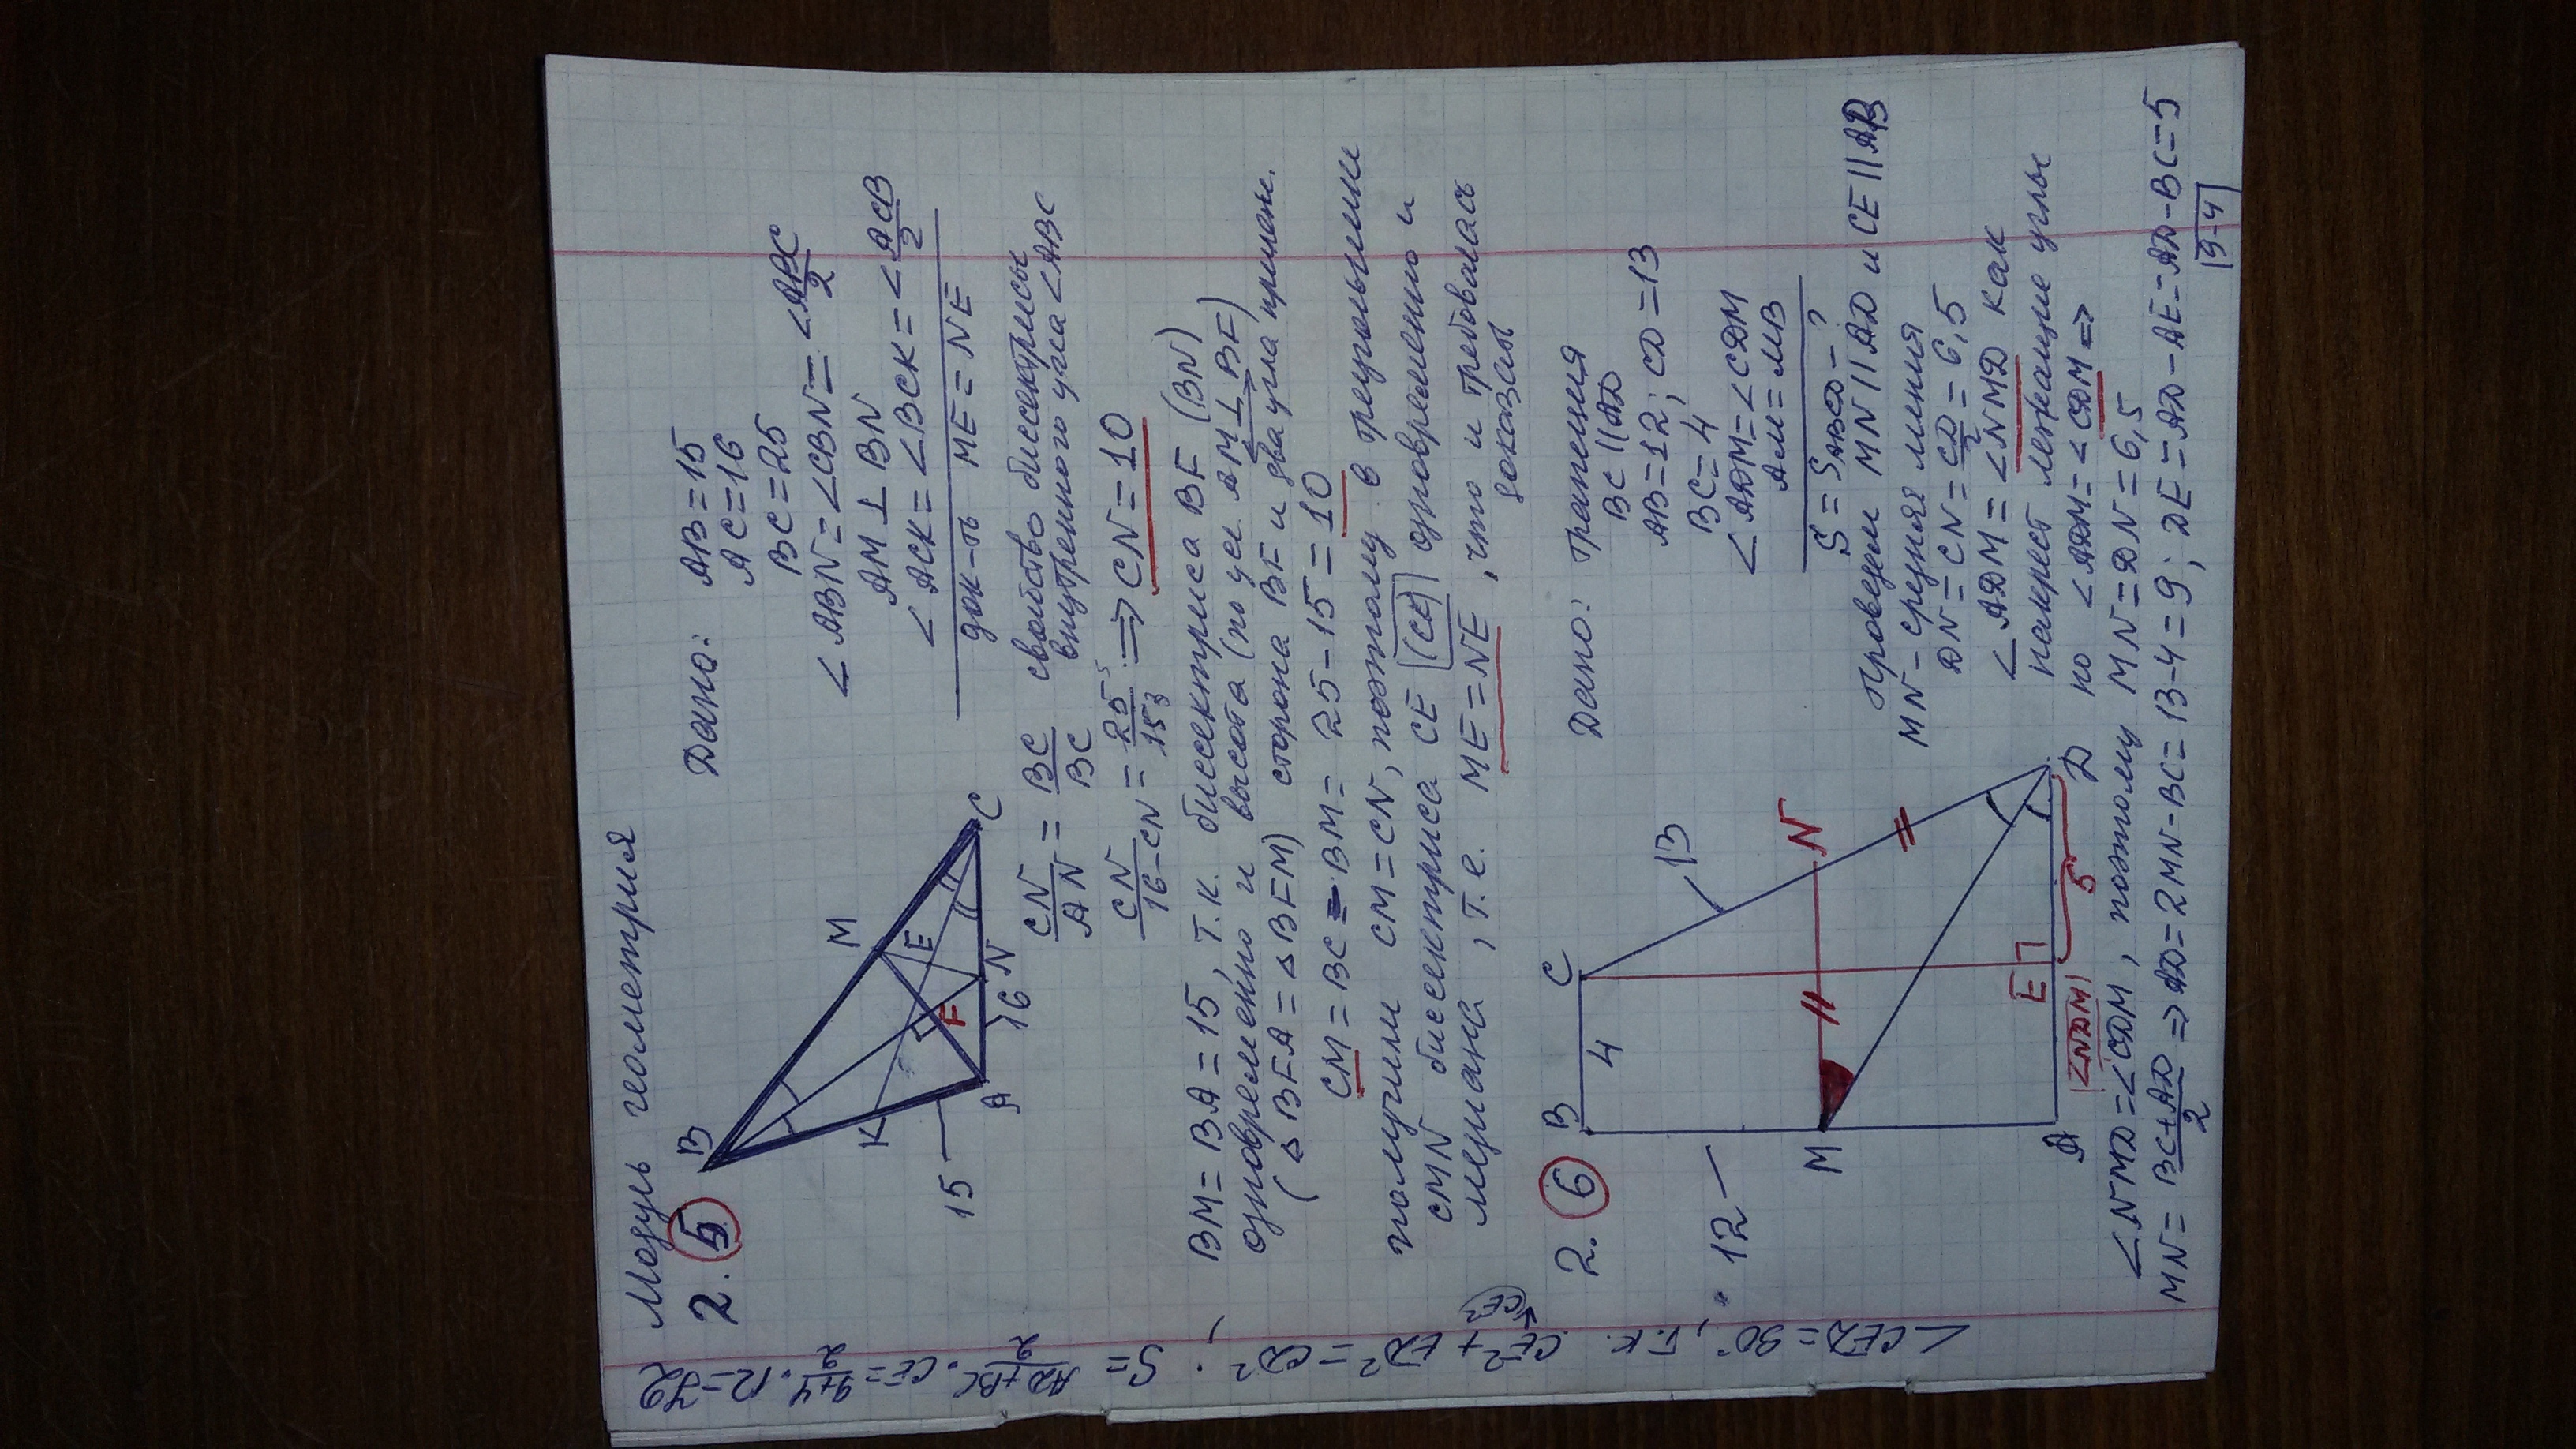 Модуль геометрия
2. 5
B
M
K
E
F
15
A
16
N
C
Дано: AB = 15
AC = 16
BC = 25
∠ABN = ∠CBN = ∠ABC/2
AM ⊥ BN
∠ACK = ∠BCK = ∠ACB/2
док-ть ME = NE
CN/AN = BC/BC свойство биссектрисы
внутреннего угла ∠ABC
CN/16-CN = 25 5/15 3 ⇒ CN = 10
BM = BA = 15, т.к. биссектриса BF (BN)
одновременно и высота (по усл. AM ⊥ BF)
(△BFA = △BFM) сторона BF и два угла прилеж.
CM = BC - BM = 25 - 15 = 10
получили CM = CN, поэтому в треугольнике
CMN биссектриса CE (CK) одновременно и
медиана, т.е. ME = NE, что и требовалось
доказать
2. 6
B
C
4
13
12
M
N
E
5
A
D
Дано: трапеция
BC || AD
AB = 12; CD = 13
BC = 4
∠ADM = ∠CDM
AM = MB
S = S ABCD - ?
Проведём MN || AD и CE || AB
MN - средняя линия
DN = CN = CD/2 = 6,5
∠ADM = ∠NMD как
накрест лежащие углы
но ∠ADM = ∠CDM ⇒
∠NDM
∠NMD = ∠CDM, поэтому MN = DN = 6,5
MN = BC + AD/2 ⇒ AD = 2MN - BC = 13 - 4 = 9; DE = AD - AE = AD - BC = 5
9-4
∠CED = 90°, т.к. CE² + ED² = CD²
CE²
S = AD + BC/2 · CE = 9+4/2 · 12 = 72